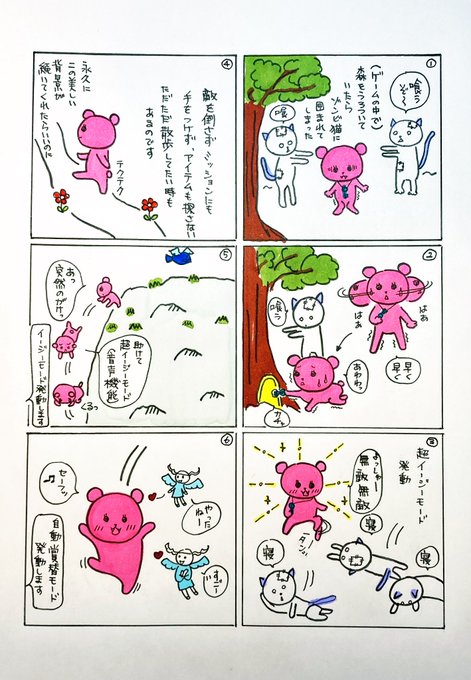 ①
(ゲームの中で)
森をうろついて
いたら
ゾンビ猫に
囲まれて
しまった
喰う
ぞ〜
喰
②
はぁ
はぁ
早く
早く
喰う
あわわっ
カチッ
③
超イージーモード
発動
よっしゃー
無敵無敵
タンッ
寝
寝
寝
④
敵を倒さずミッションにも
手をつけず、アイテムも探さない
ただただ散歩してたい時も
あるのです
永久に
この美しい
背景が
続いてくれたらいいのに
テクテク
⑤
あっ
突然のがけっ
助けて
超イージーモード
音声機能
くるっ
イージーモード発動します
⑥
セーフッ
♪
やった
ねー
すごー
自動賞賛モード
発動します